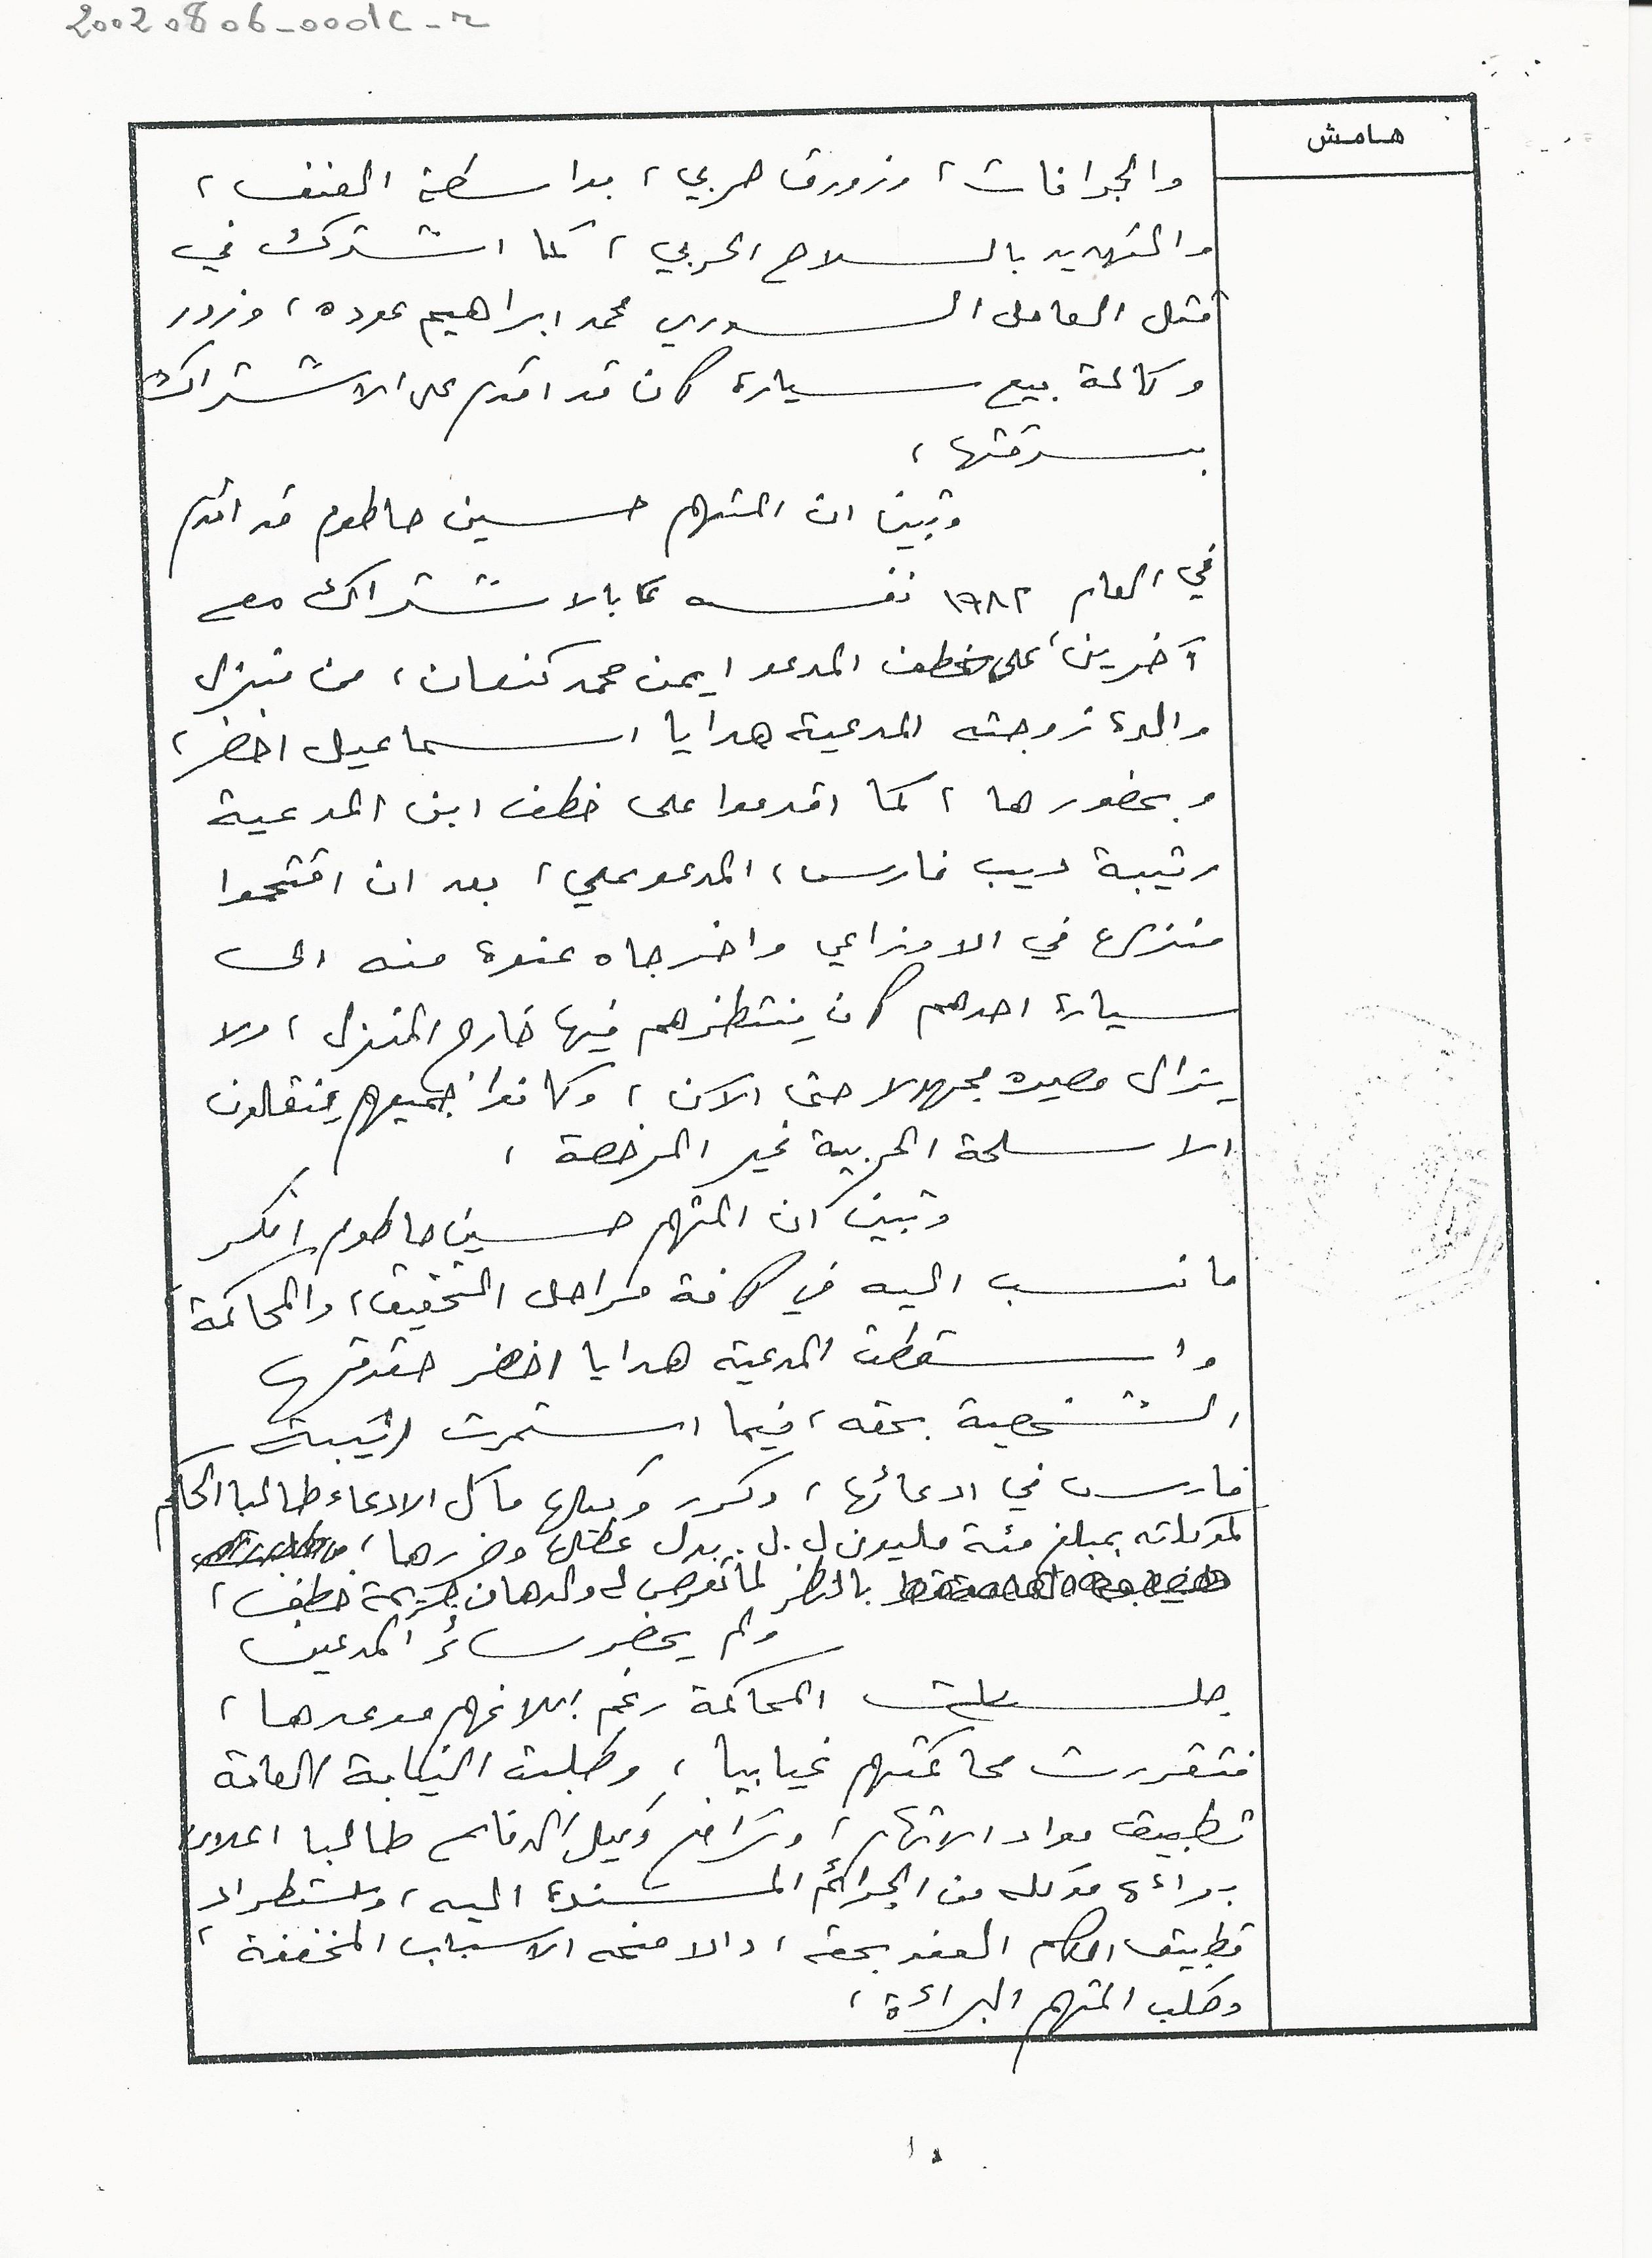 20020806-0001c-r
هامش
والجرافات، وزورق حربي، بواسطة العنف،
والتهديد بالسلاح الحربي، كما اشترك في
قتل العامل السوري محمد ابراهيم عوده، وزور
وكالة بيع سيارة كان قد اقدم على الاشتراك
بسرقتها،
وتبين ان المتهم حسين حاطوم قد اقدم
في العام ١٩٨٢ نفسه بالاشتراك مع
آخرين، على خطف المدعو ايمن محمد كنعان، من منزل
والدة زوجته المدعية هدايا اسماعيل اخضر،
وبحضورها، كما اقدموا على خطف ابن المدعية
رتيبة ديب فارس، المدعو علي، بعد ان اقتحموا
منزله في الاوزاعي واخرجاه عنوة منه الى
سيارة احدهم كان ينتظرهم فيها خارج المنزل، ولا
يزال مصيره مجهولا حتى الآن، وكانوا جميعهم ينقلون
الاسلحة الحربية غير المرخصة،
وتبين ان المتهم حسين حاطوم انكر
ما نسب اليه في كافة مراحل التحقيق، والمحاكمة
واسقطت المدعية هدايا اخضر حقوقها
الشخصية بحقه، فيما استمرت رتيبة
فارس في ادعائها، وكرر وكيلها مآل الادعاء طالبا الحكم
لموكلته بمبلغ مئة مليون ل.ل. بدل عطلها وضررها،
بالنظر لما تعرض له ولدها من جريمة خطف،
ولم يحضر سائر المدعين
جلسات المحاكمة رغم ابلاغهم موعدها،
فتقررت محاكمتهم غيابيا، وطلبت النيابة العامة
تطبيق مواد الاتهام، وترافع وكيل الدفاع طالبا اعلان
براءة موكله من الجرائم المسندة اليه، واستطراد
تطبيق احكام العفو بحقه، والا منحه الاسباب المخففة،
وطلب المتهم البراءة،
١٠